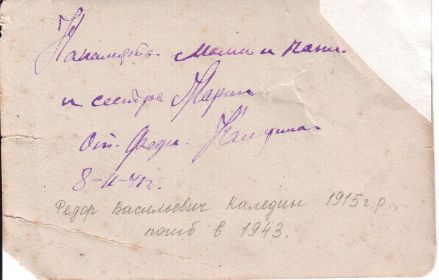 На память маме и папе
и сестре Марии
От Феди Каледина
8-II-41г.
Федор Васильевич Каледин 1915г.р.,
погиб в 1943.